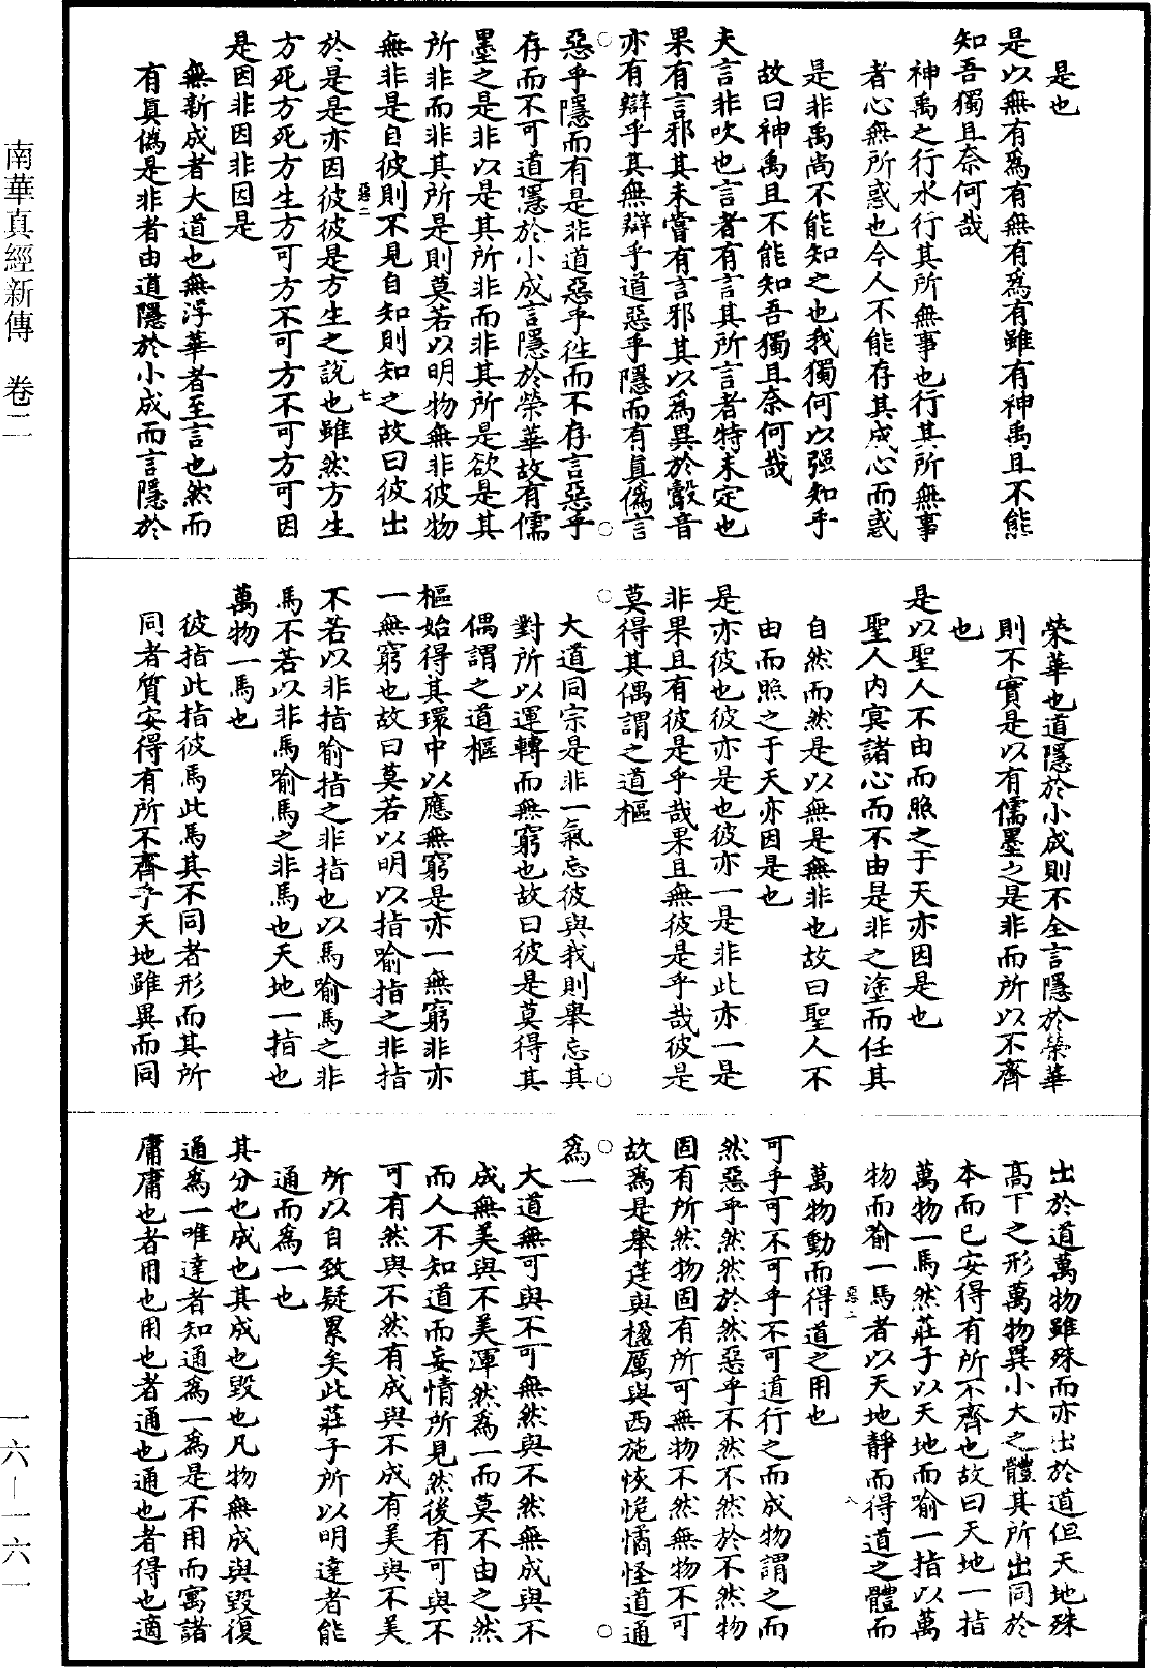 南華真經新傳　卷二
是也
是以無有爲有無有爲有雖有神禹且不能
知吾獨且奈何哉
神禹之行水行其所無事也行其所無事
者心無所惑也今人不能存其成心而惑
是非禹尚不能知之也我獨何以强知乎
故曰神禹且不能知吾獨且奈何哉
夫言非吹也言者有言其所言者特未定也
果有言邪其未嘗有言邪其以爲異於鷇音
亦有辯乎其無辯乎道惡乎隱而有真僞言
惡乎隱而有是非道惡乎往而不存言惡乎
存而不可道隱於小成言隱於榮華故有儒
墨之是非以是其所非而非其所是欲是其
所非而非其所是則莫若以明物無非彼物
無非是自彼則不見自知則知之故曰彼出
惡二　七
於是是亦因彼彼是方生之說也雖然方生
方死方死方生方可方不可方不可方可因
是因非因非因是
無新成者大道也無浮華者至言也然而
有真僞是非者由道隱於小成而言隱於
榮華也道隱於小成則不全言隱於榮華
則不實是以有儒墨之是非而所以不齊
也
是以聖人不由而照之于天亦因是也
聖人內冥諸心而不由是非之塗而任其
自然而然是以無是無非也故曰聖人不
由而照之于天亦因是也
是亦彼也彼亦是也彼亦一是非此亦一是
非果且有彼是乎哉果且無彼是乎哉彼是
莫得其偶謂之道樞
大道同宗是非一氣忘彼與我則舉忘其
對所以運轉而無窮也故曰彼是莫得其
偶謂之道樞
樞始得其環中以應無窮是亦一無窮非亦
一無窮也故曰莫若以明以指喻指之非指
不若以非指喻指之非指也以馬喻馬之非
馬不若以非馬喻馬之非馬也天地一指也
萬物一馬也
彼指此指彼馬此馬其不同者形而其所
同者質安得有所不齊乎天地雖異而同
出於道萬物雖殊而亦出於道但天地殊
高下之形萬物異小大之體其所出同於
本而已安得有所不齊也故曰天地一指
萬物一馬然莊子以天地而喻一指以萬
物而喻一馬者以天地靜而得道之體而
惡二　八
萬物動而得道之用也
可乎可不可乎不可道行之而成物謂之而
然惡乎然然於然惡乎不然不然於不然物
固有所然物固有所可無物不然無物不可
故爲是舉莛與楹厲與西施恢恑憰怪道通
爲一
大道無可與不可無然與不然無成與不
成無美與不美渾然爲一而莫不由之然
而人不知道而妄情所見然後有可與不
可有然與不然有成與不成有美與不美
所以自致疑累矣此莊子所以明達者能
通而爲一也
其分也成也其成也毀也凡物無成與毀復
通爲一唯達者知通爲一爲是不用而寓諸
庸庸也者用也用也者通也通也者得也適
一六—一六一